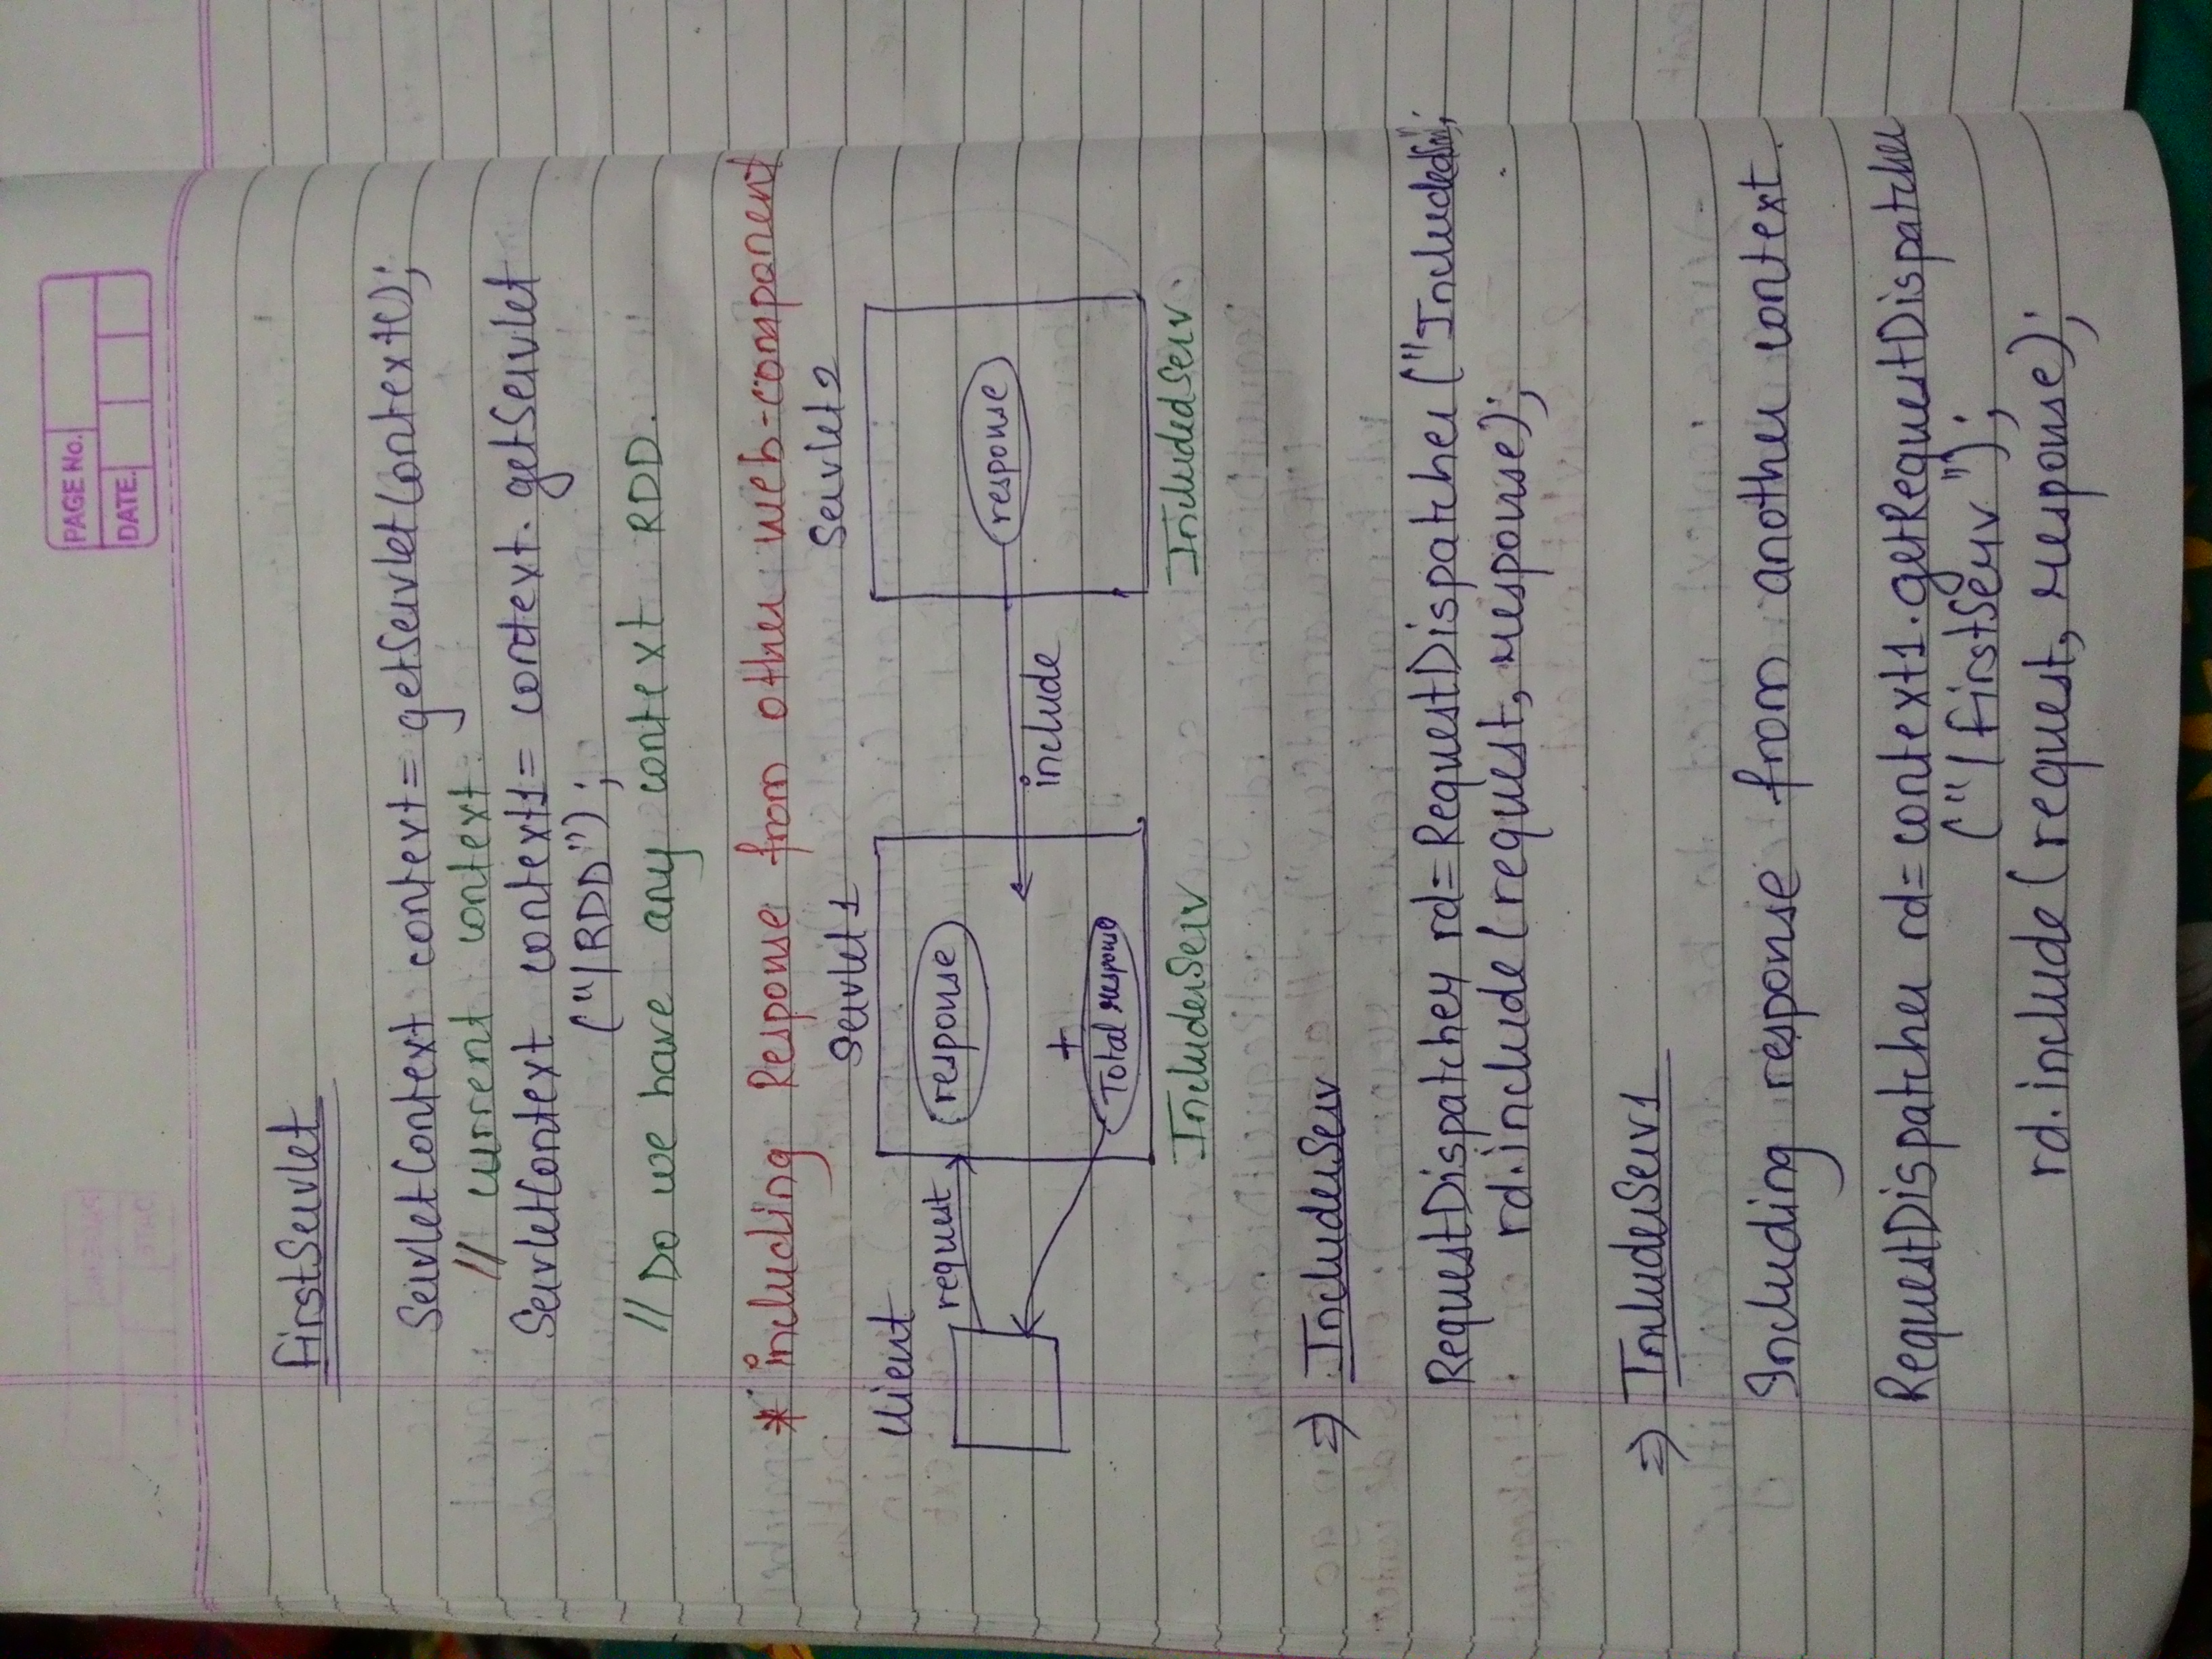 PAGE No.
DATE.
FirstServlet
ServletContext context = getServletContext();
// current context.
ServletContext context1 = context.getServlet
("/RDD");
// Do we have any context RDD.
* including Response from other web-component
Servlet1 Servlet2
Client
request response
response
include
+
Total response
IncluderServ IncludedServ.
⇒ IncluderServ
RequestDispatcher rd = RequestDispatcher ("Included
rd.include(request, response);
⇒ IncluderServ1
Including response from another context.
RequestDispatcher rd = context1.getRequestDispatcher
("/firstServ");
rd.include(request, response);